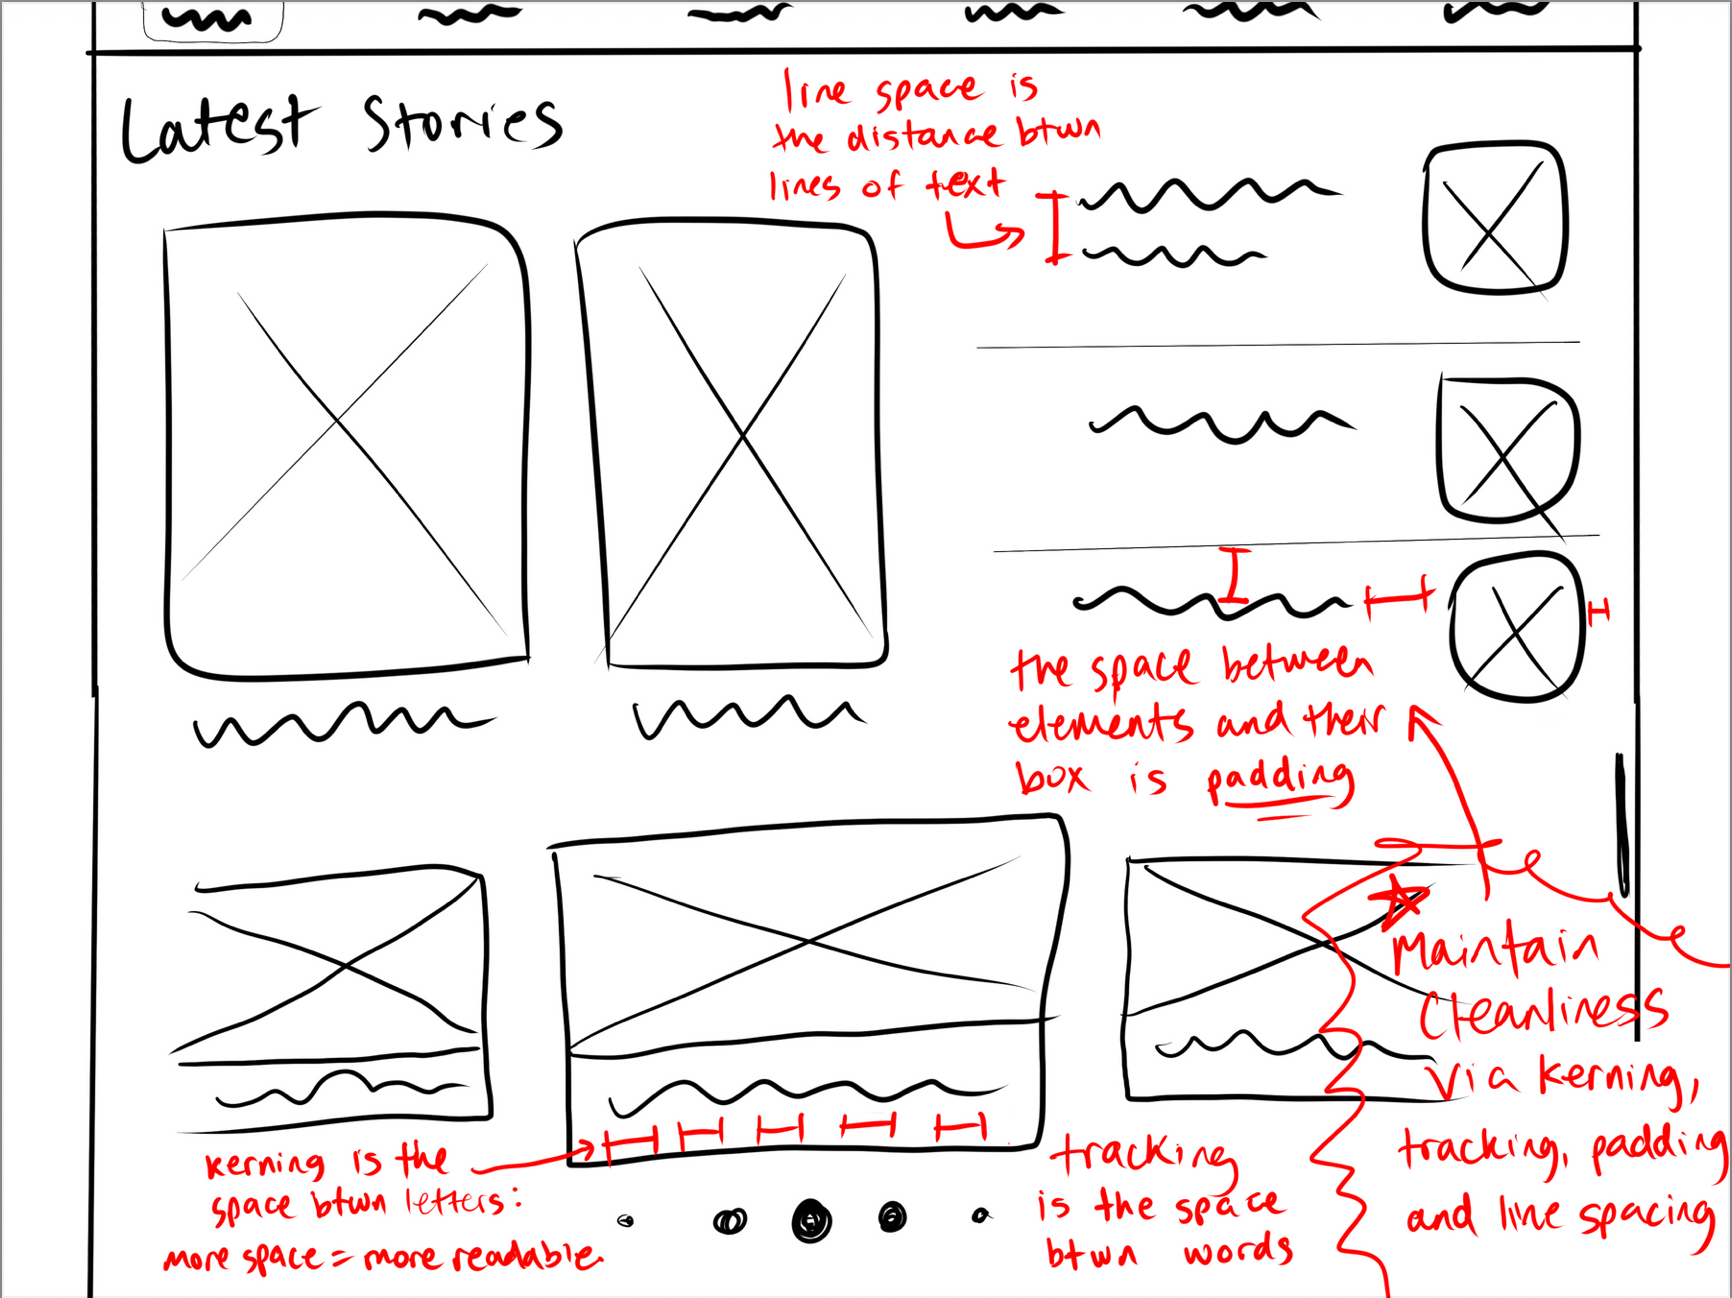 Latest Stories
line space is
the distance btwn
lines of text
the space between
elements and their
box is padding
Maintain
Cleanliness
via kerning,
tracking, padding
and line spacing
kerning is the
space btwn letters:
more space = more readable.
tracking
is the space
btwn words